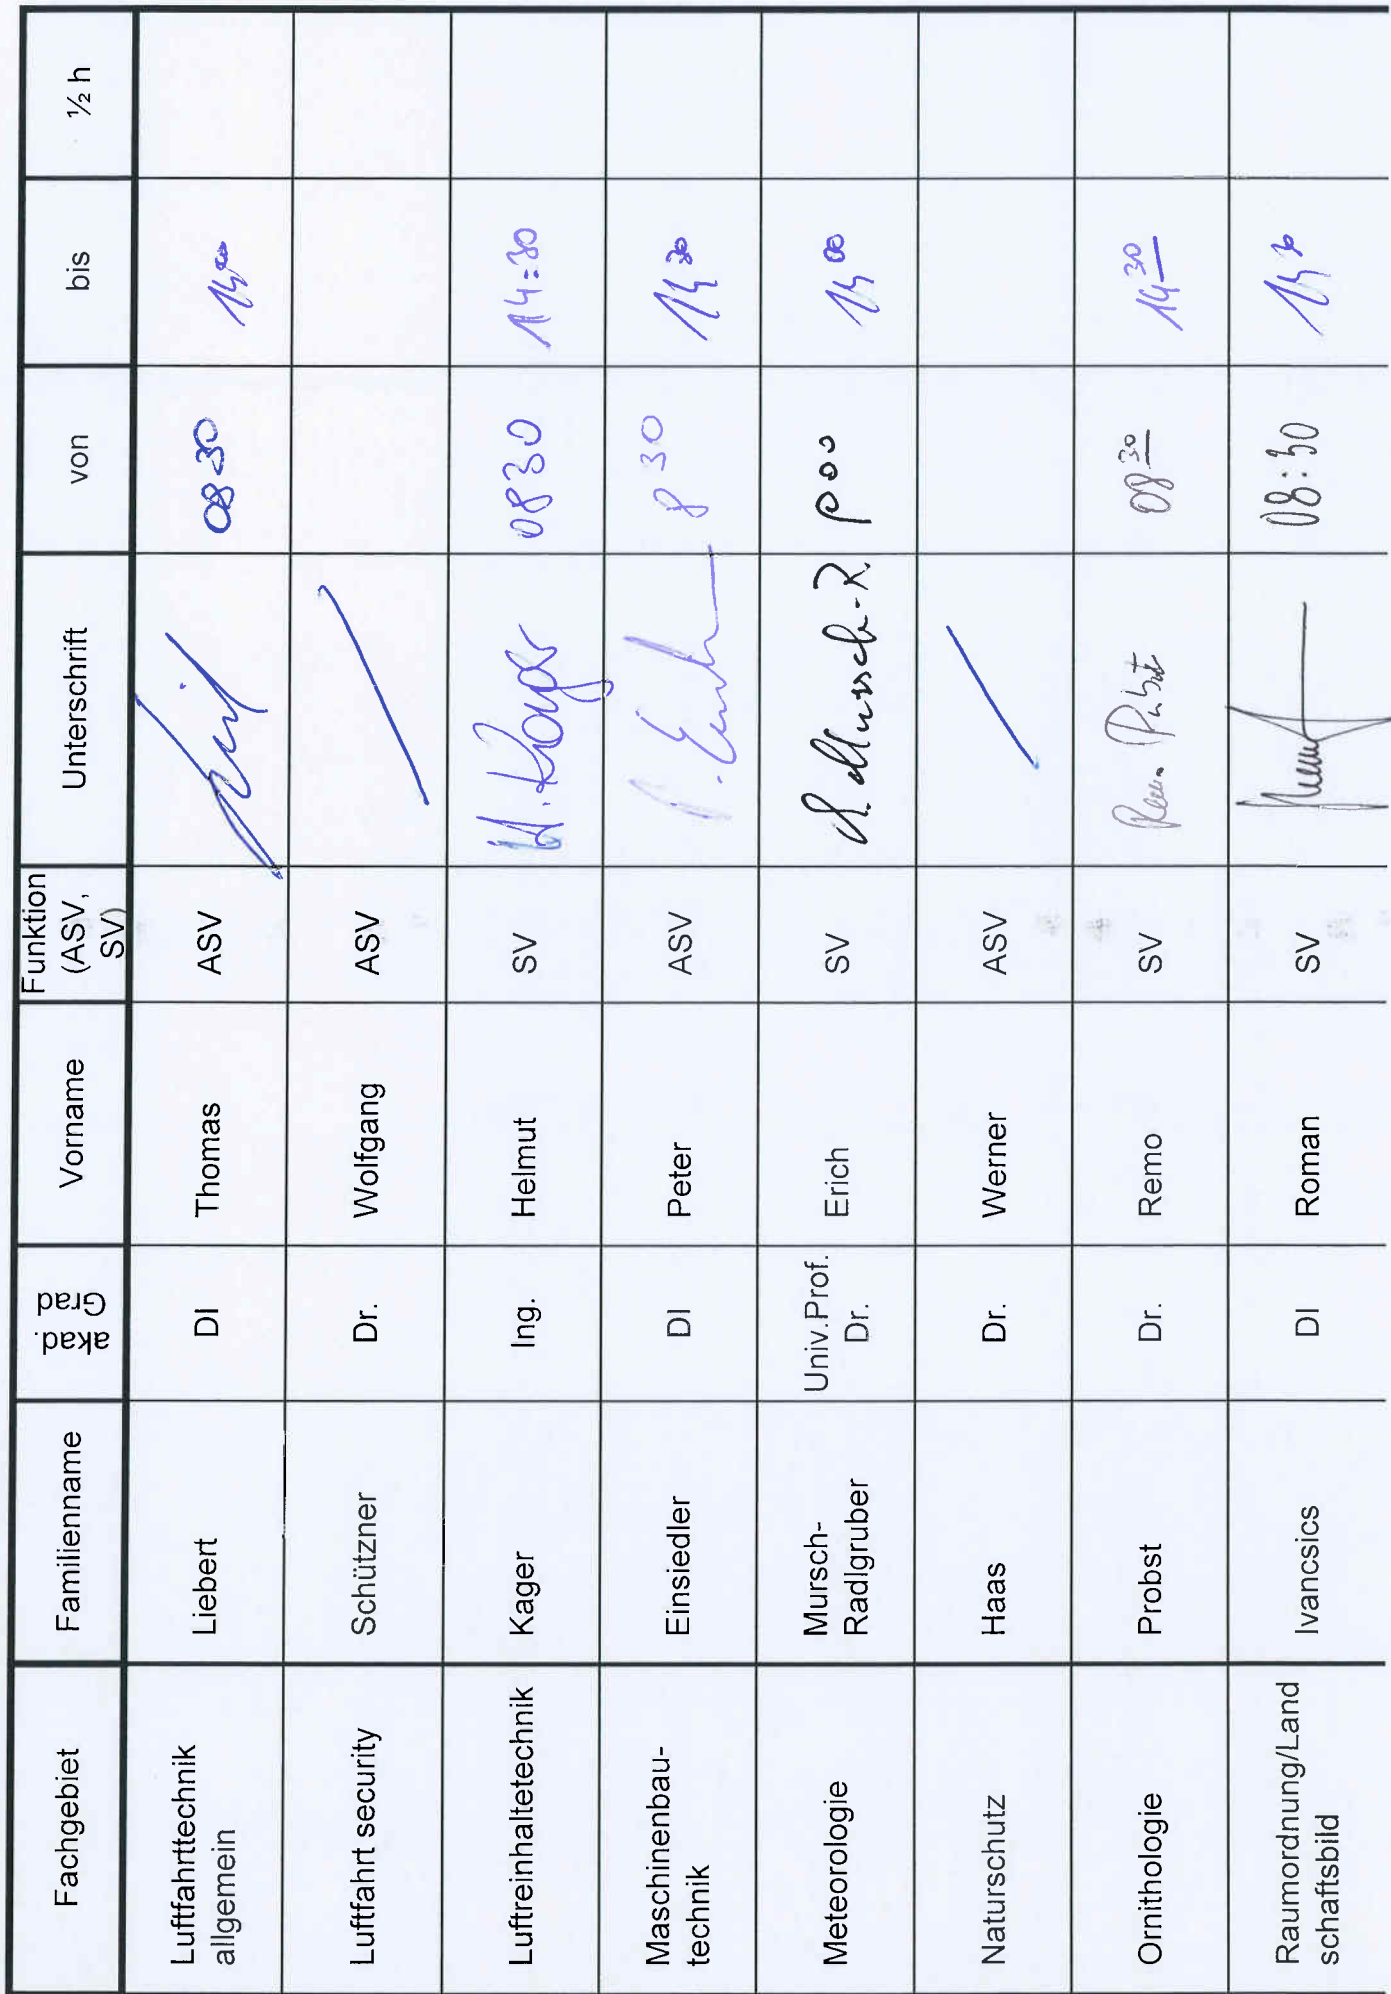 Fachgebiet Familienname akad. Grad Vorname Funktion (ASV, SV) Unterschrift von bis ½ h
Luftfahrttechnik allgemein Liebert DI Thomas ASV 08 30 14 00
Luftfahrt security Schützner Dr. Wolfgang ASV
Luftreinhaltetechnik Kager Ing. Helmut SV H. Kager 0830 14:30
Maschinenbau-technik Einsiedler DI Peter ASV 8 30 14 30
Meteorologie Mursch-Radlgruber Univ.Prof. Dr. Erich SV E. Mursch-R. 14 00
Naturschutz Haas Dr. Werner ASV
Ornithologie Probst Dr. Remo SV Remo Probst 08 30 14 30
Raumordnung/Land schaftsbild Ivancsics DI Roman SV 08:30 14 30